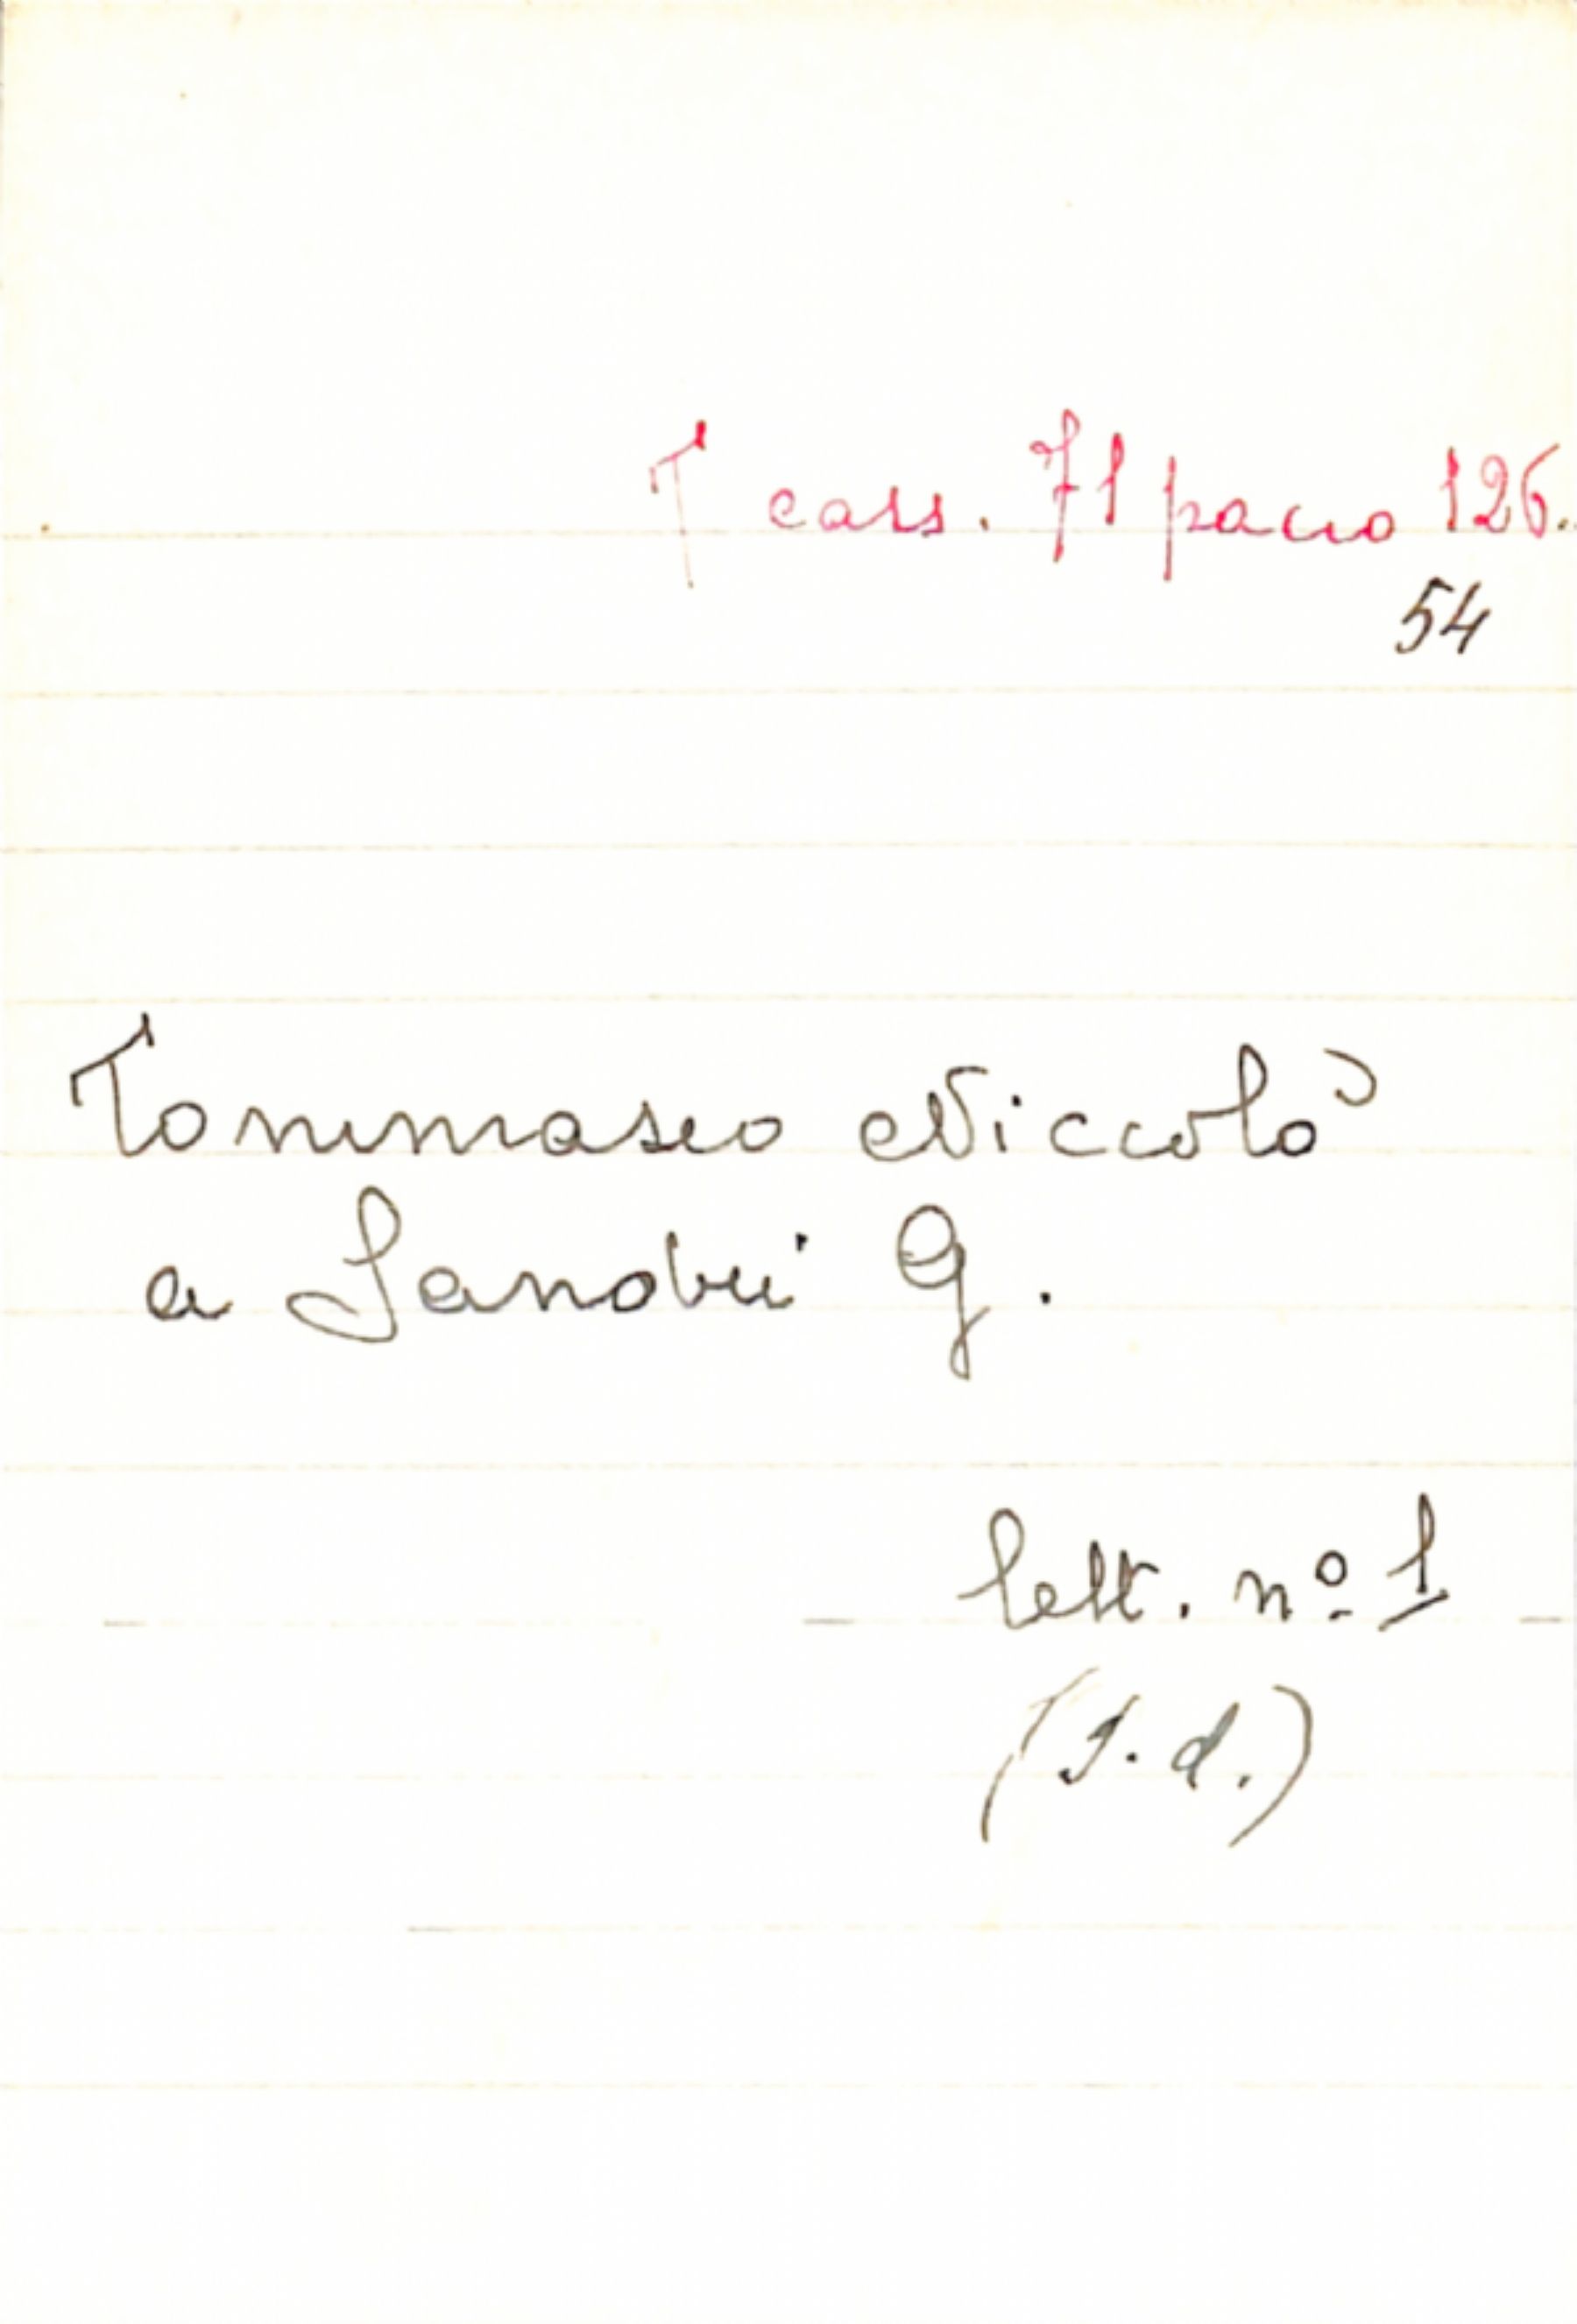 T cass. 71 pacco 126.
54
Tommaseo Niccolò
a G.
lett. nº 1
(s. d.)